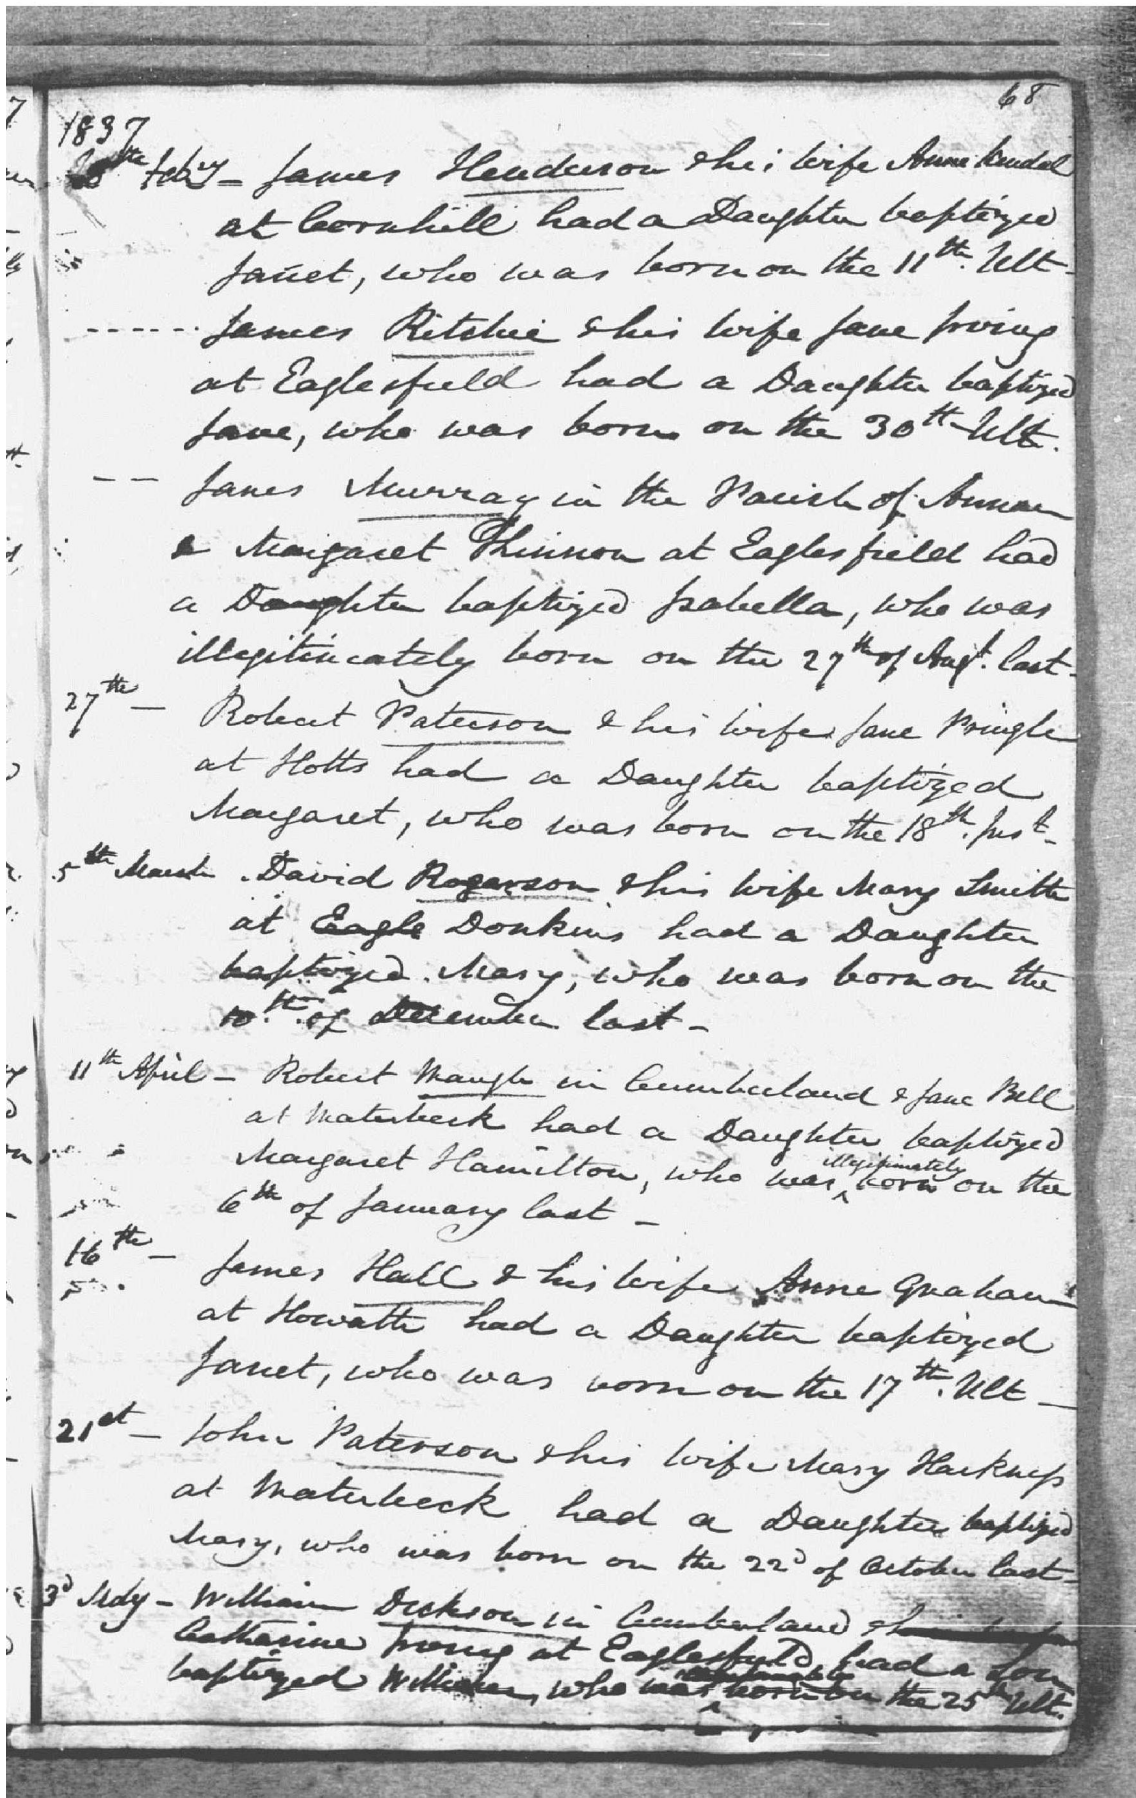 68
1837
th Feby - James Henderson & his Wife Anne
at Cornhill had a Daughter baptized
Janet, who was born on the 11th. Ult -
James Ritchie & his Wife Jane Irving
at Eaglesfield had a Daughter baptized
Jane, who was born on the 30th Ult.
James Murray in the Parish of Annan
& Margaret Shinnon at Eaglesfield had
a Daughter baptized Isabella, who was
illegitimately born on the 27th of Augt. last -
27th - Robert Paterson & his Wife Jane Pringle
at Hotts had a Daughter baptized
Margaret, who was born on the 18th. Inst -
5th March David Rogerson & his Wife Mary Smith
at Eagle Donkins had a Daughter
baptized Mary, who was born on the
10th. of December last -
11th April - Robert Waugh in Cumberland & Jane Bell
at Waterbeck had a Daughter baptized
Margaret Hamilton, who was illegitimately born on the
6th of January last -
16th - James Hall & his Wife Anne Graham
at Howatts had a Daughter baptized
Janet, who was born on the 17th. Ult -
21st - John Paterson & his Wife Mary Harkness
at Waterbeck had a Daughter baptized
Mary, who was born on the 22d of October last -
3d May - William Dickson in Cumberland & his wife
Catharine Irving at Eaglesfield had a Son
baptized William, who was born on the 25th Ult.